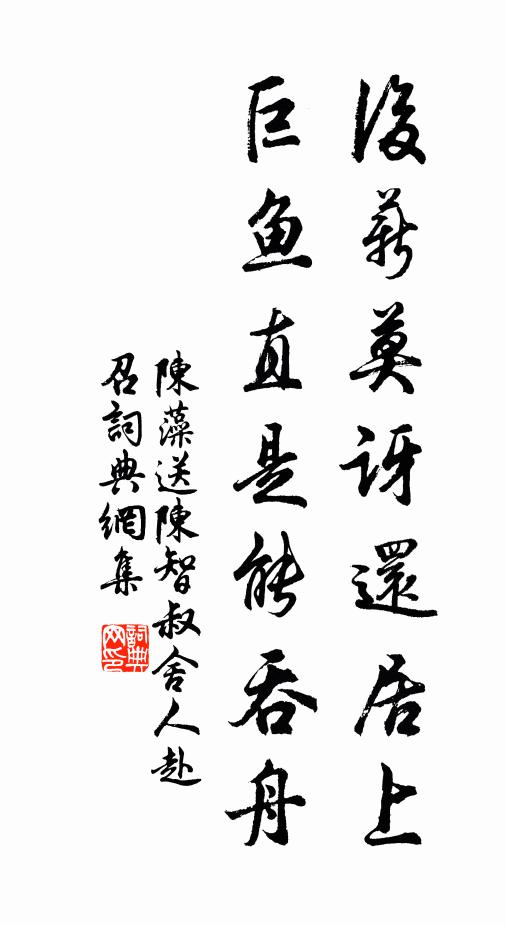 後薪莫訝還居上
巨鱼直是能吞舟
陳藻送陳智叔舍人赴
召詞典網集
詞典网印